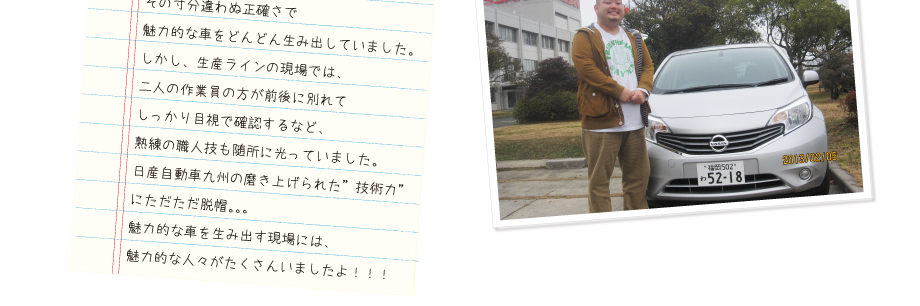 その寸分違わぬ正確さで
魅力的な車をどんどん生み出していました。
しかし、生産ラインの現場では、
二人の作業員の方が前後に別れて
しっかり目視で確認するなど、
熟練の職人技も随所に光っていました。
日産自動車九州の磨き上げられた”技術力”
にただただ脱帽。。。
魅力的な車を生み出す現場には、
魅力的な人々がたくさんいましたよ！！！
福岡502
わ 52-18